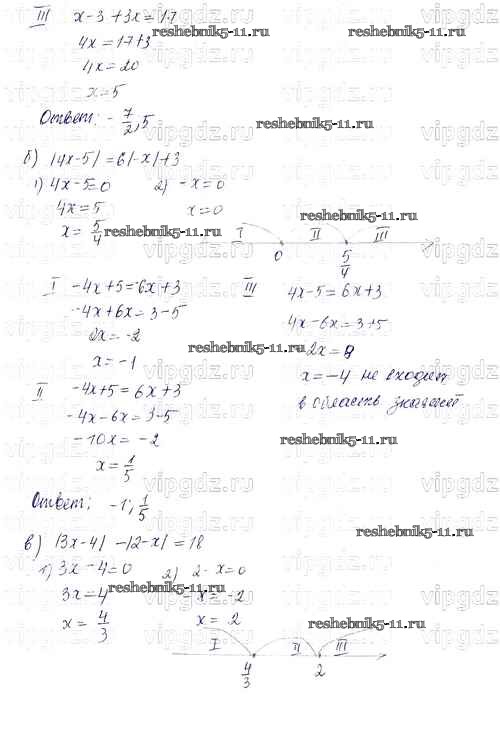 III x-3+3x=17
4x=17+3
4x=20
x=5
Ответ: -7/2, 5
б) |4x-5|=6|-x|+3
1) 4x-5=0 2) -x=0
4x=5 x=0
x=5/4
I II III
0 5/4
I -4x+5=-6x+3
-4x+6x=3-5
2x=-2
x=-1
III 4x-5=6x+3
4x-6x=3+5
-2x=8
x=-4 не входит
в область значений
II -4x+5=6x+3
-4x-6x=3-5
-10x=-2
x=1/5
Ответ: -1; 1/5
в) |3x-4|-|2-x|=18
1) 3x-4=0 2) 2-x=0
3x=4 -x=-2
x=4/3 x=2
I II III
4/3 2
reshebnik5-11.ru
reshebnik5-11.ru
reshebnik5-11.ru
reshebnik5-11.ru
reshebnik5-11.ru
reshebnik5-11.ru
reshebnik5-11.ru
reshebnik5-11.ru
vipgdz.ru